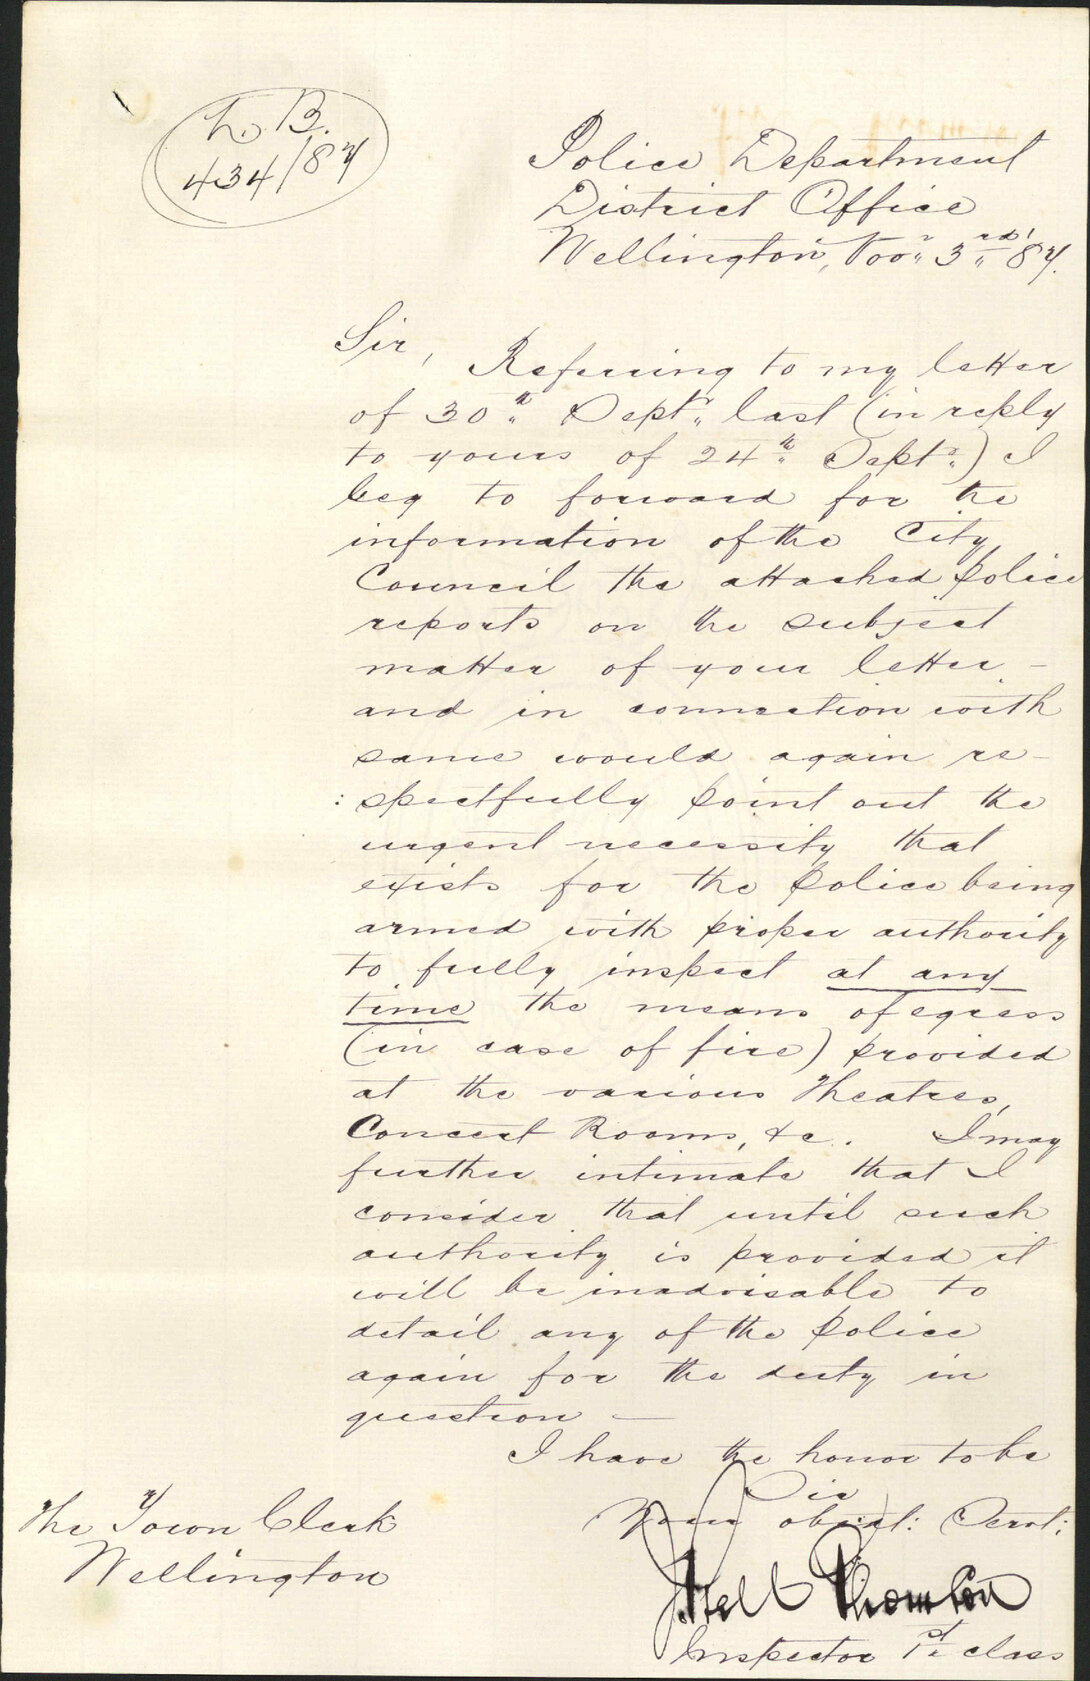 L. B.
434/87
Police Department
District Office
Wellington, Novr 3rd '87.
Sir,
Referring to my letter
of 30th Septr. last (in reply
to yours of 24th Septr.) I
beg to forward for the
information of the City
Council the attached Police
reports on the subject
matter of your letter –
and in connection with
same would again re-
:spectfully point out the
urgent necessity that
exists for the Police being
armed with proper authority
to fully inspect at any
time the means of egress
(in case of fire) provided
at the various Theatres,
Concert Rooms, &c. I may
further intimate that I
consider that until such
authority is provided it
will be inadvisable to
detail any of the Police
again for the duty in
question —
I have the honor to be
Sir
Your obedt: Servt:
Thomson
Inspector 1st class
The Town Clerk
Wellington